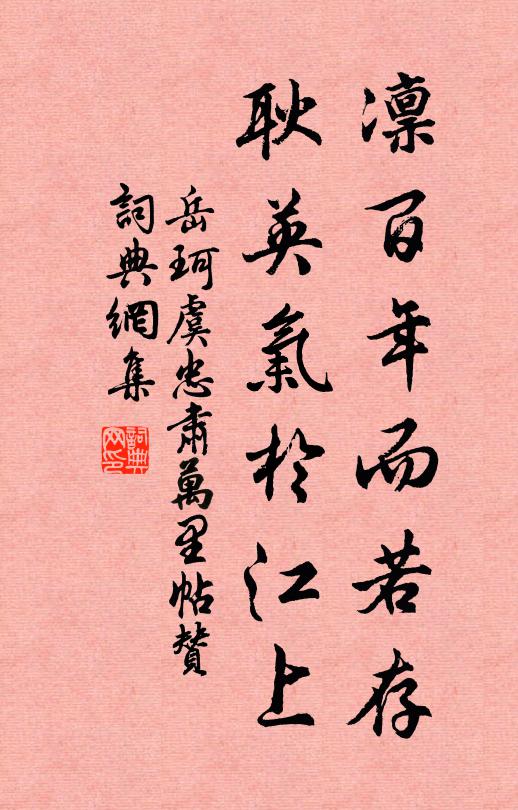 凛百年而若存
耿英氣於江上
岳珂虞忠肅萬里帖贊
詞典網集
詞典网印